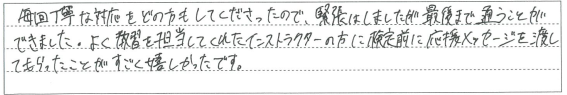 毎回丁寧な対応をどの方もしてくださったので、緊張はしましたが最後まで通うことが
できました。よく教習を担当してくれたインストラクターの方に検定前に応援メッセージを渡し
てもらったことがすごく嬉しかったです。